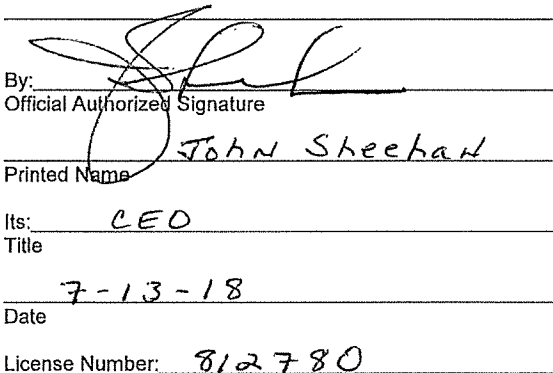 By:
Official Authorized Signature
John Sheehan
Printed Name
Its: CEO
Title
7-13-18
Date
License Number: 812780